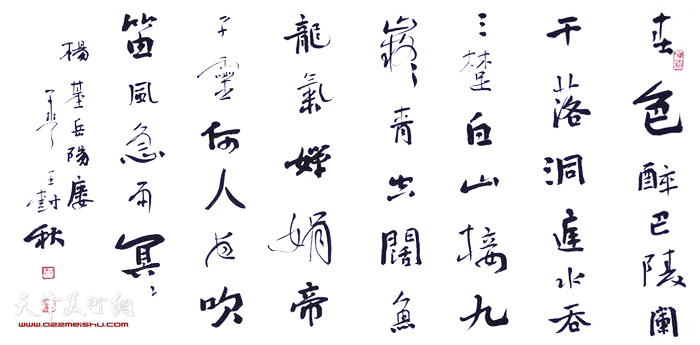 春色醉巴陵闌
干落洞庭水吞
三楚白山接九
嶷青空闊魚
龍氣嬋娟帝
子靈何人夜吹
笛風急雨冥〻
楊基岳陽廔
王樹秋
天津美術網
www.022meishu.com